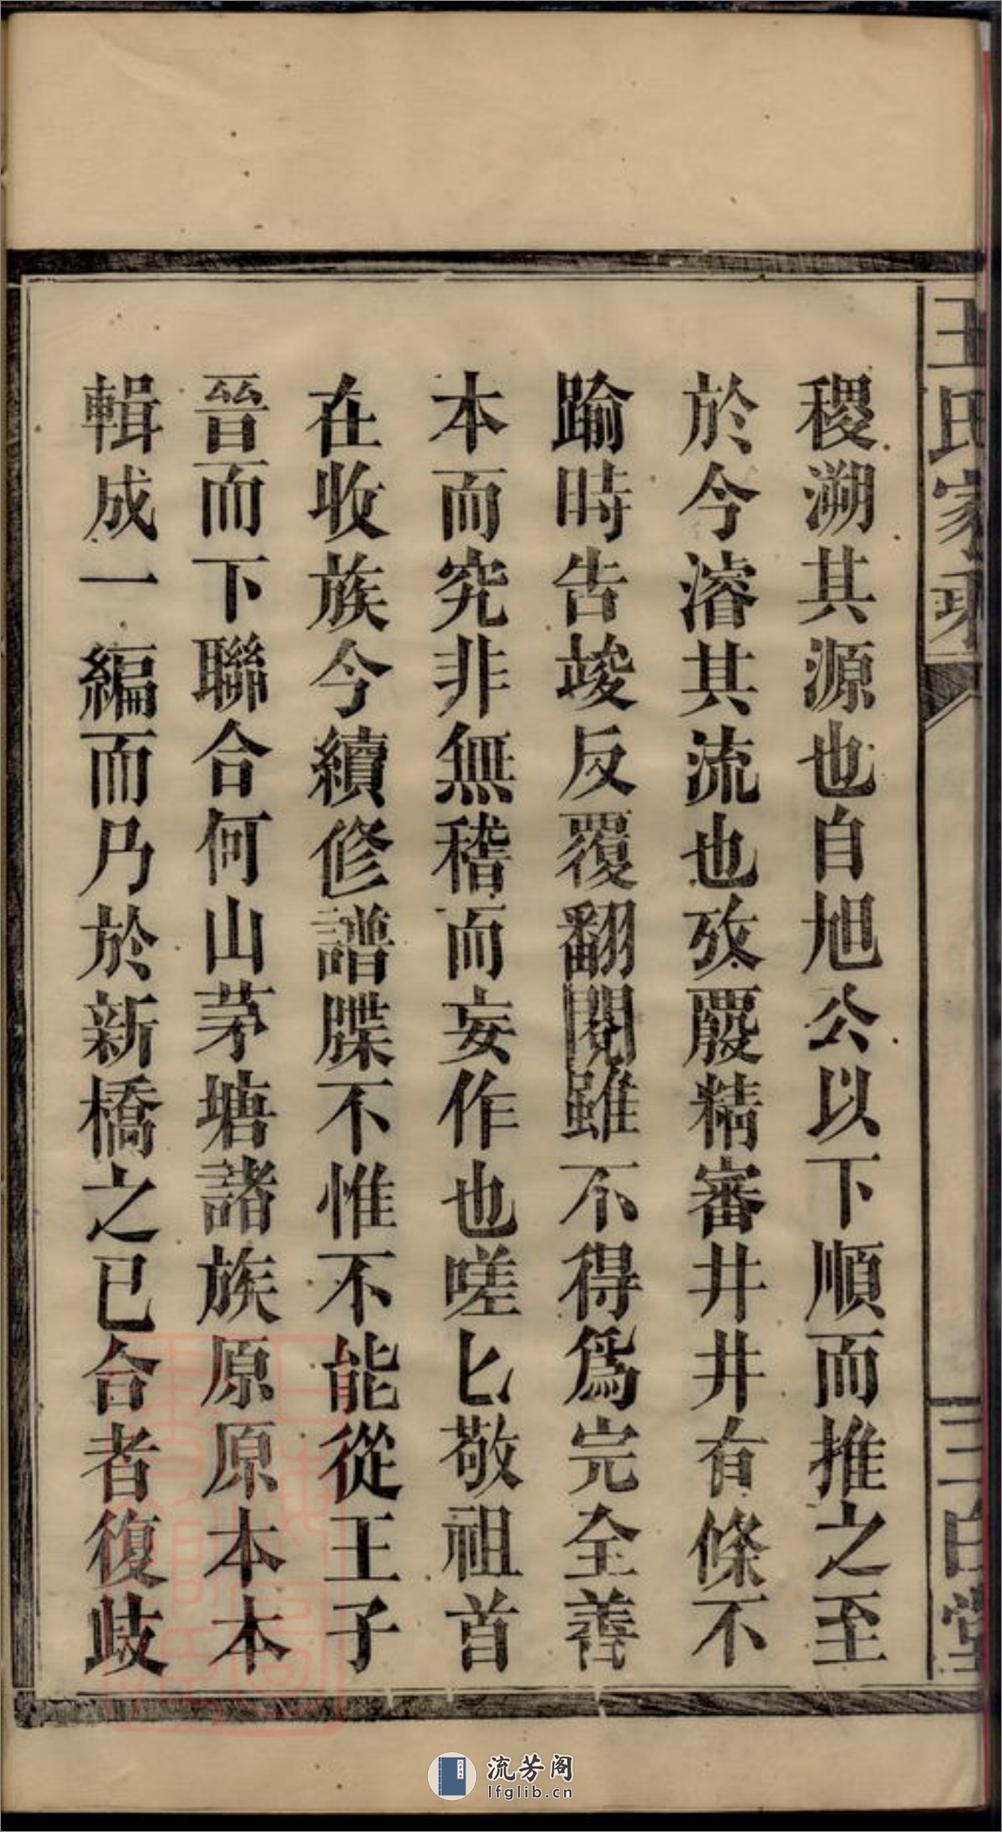 稷溯其源也自旭公以下順而推之至
於今濬其流也攷覈精審井井有條不
踰時告竣反覆翻閱雖不得爲完全善
本而究非無稽而妄作也嗟匕敬祖首
在收族今續修譜牒不惟不能從王子
晉而下聯合何山茅塘諸族原原本本
輯成一編而乃於新橋之已合者復歧
王氏家乘
三白堂
流芳阁
lfglib.cn